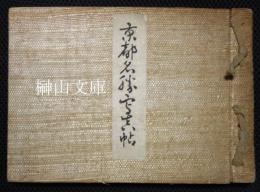 京都名勝写真帖
榊山文庫